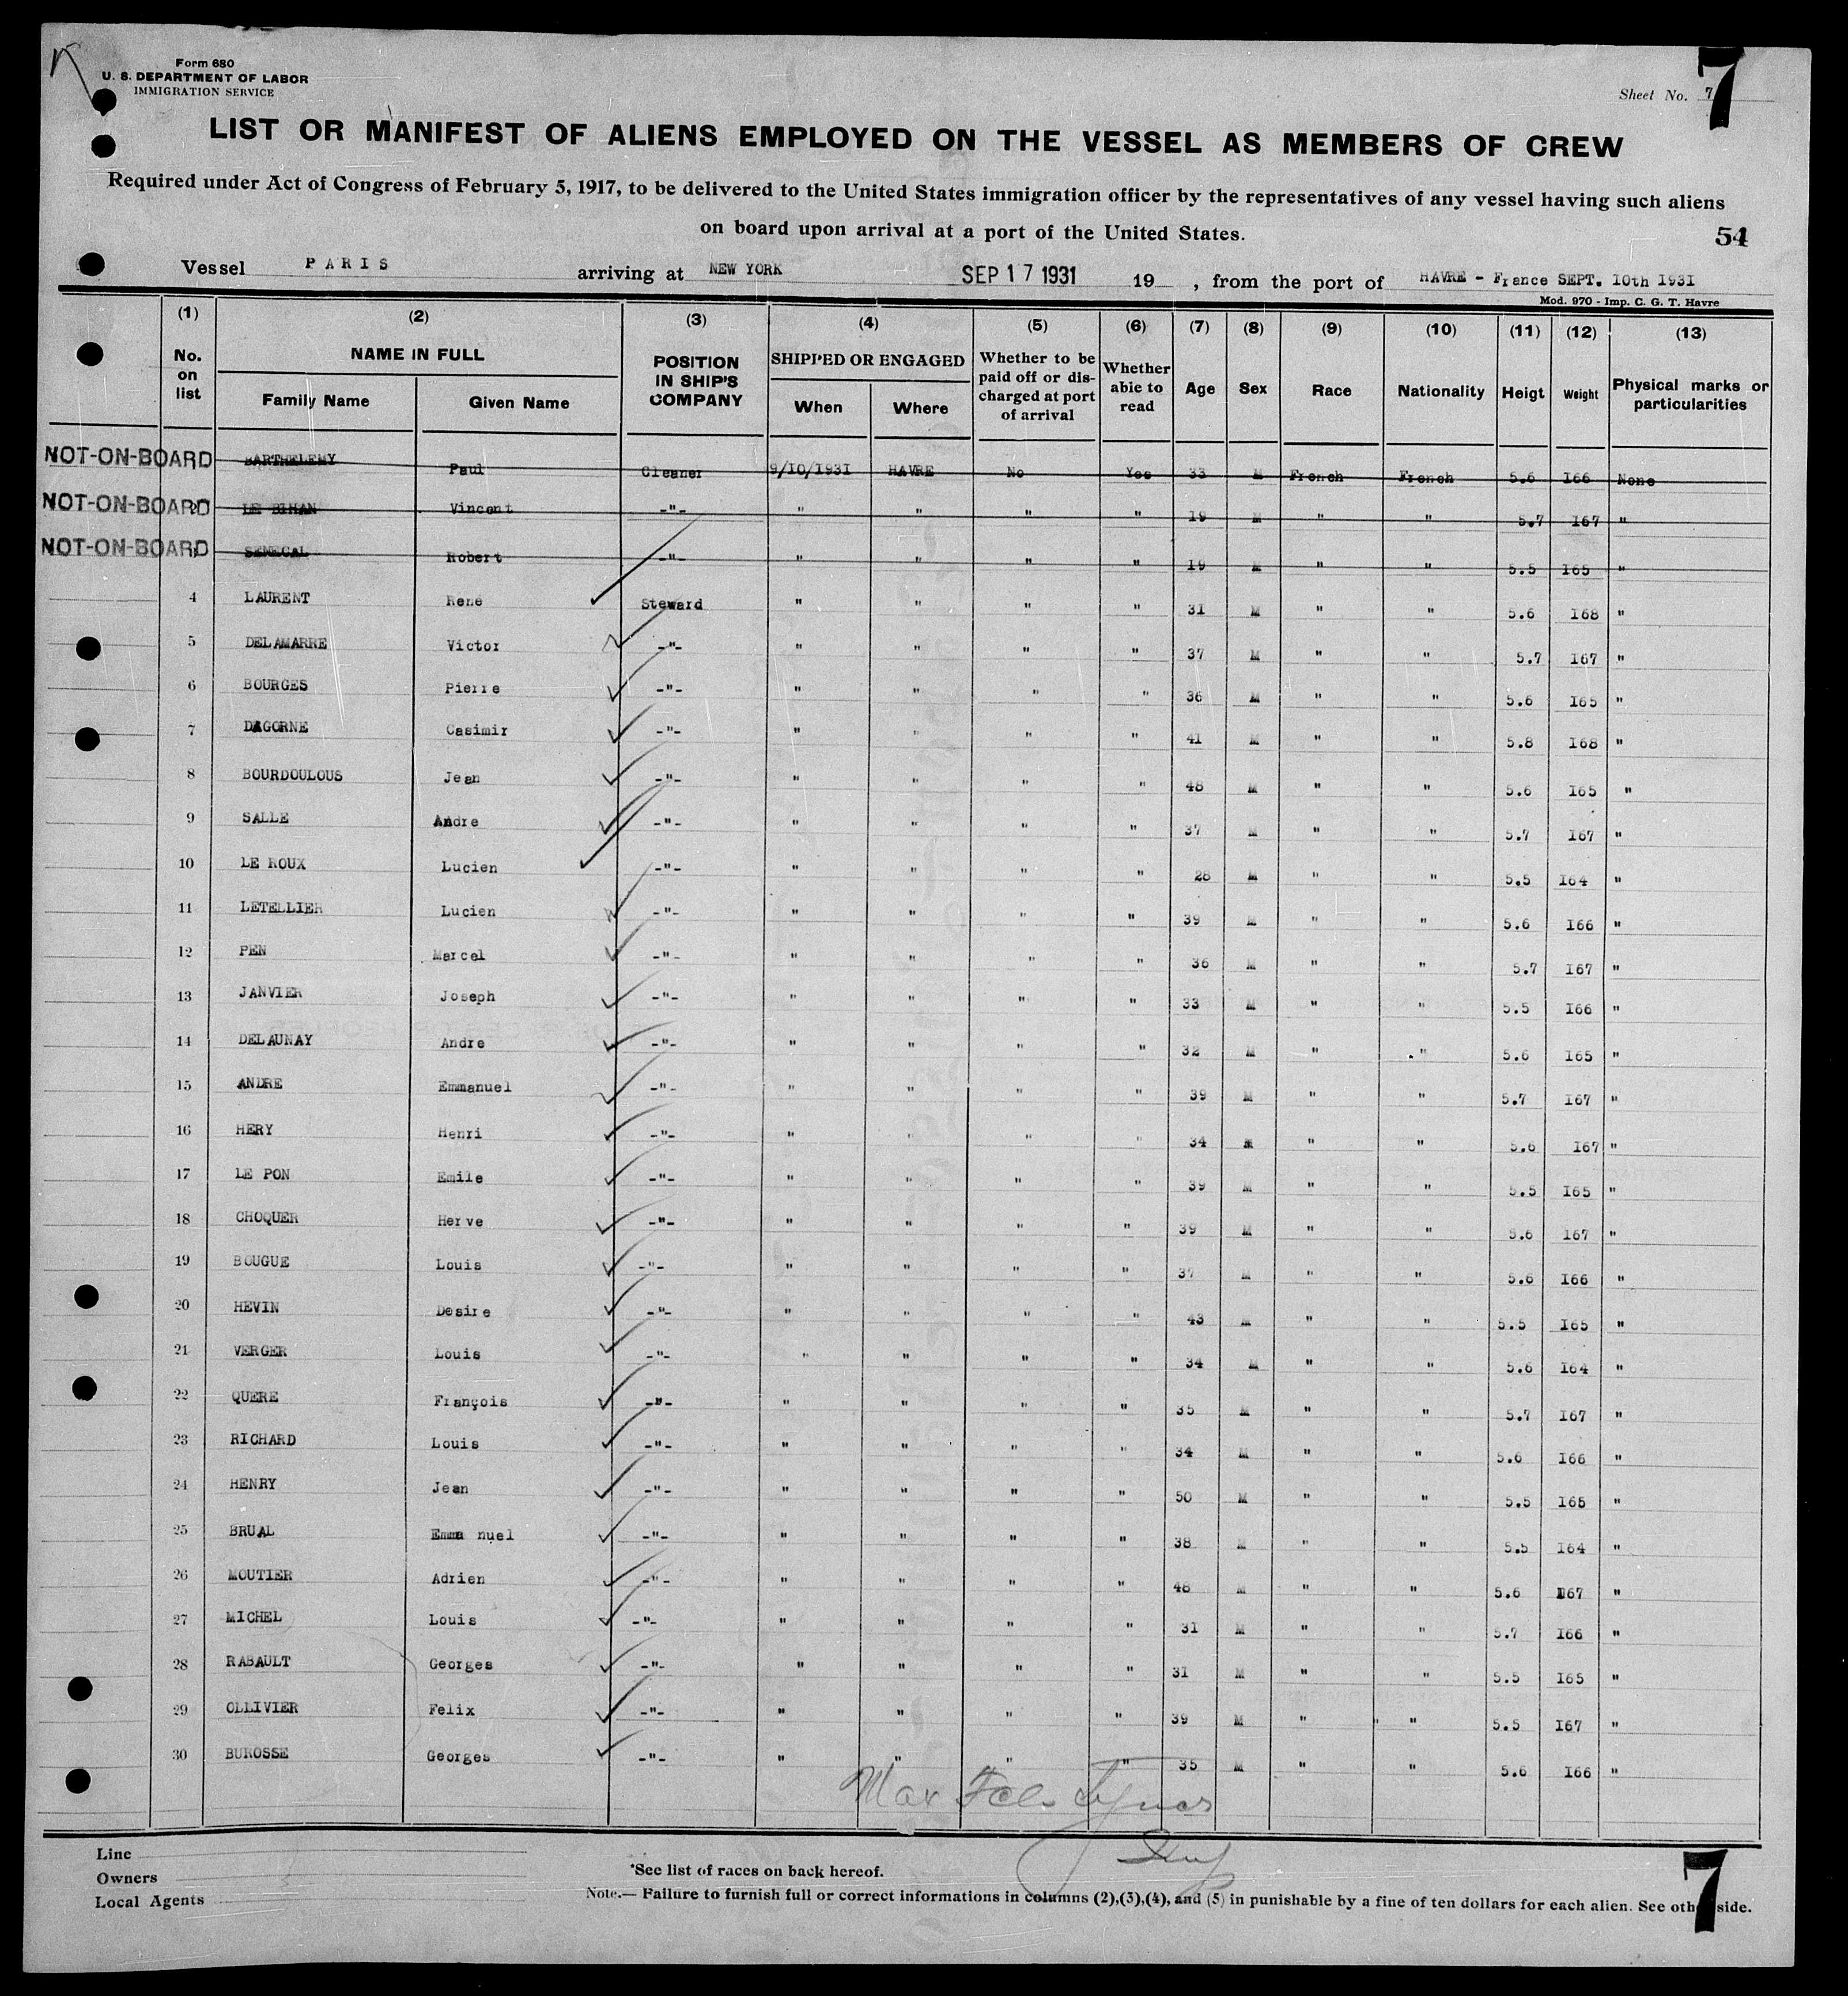 Form 680
U. S. DEPARTMENT OF LABOR
IMMIGRATION SERVICE
Sheet No. 7
7
LIST OR MANIFEST OF ALIENS EMPLOYED ON THE VESSEL AS MEMBERS OF CREW
Required under Act of Congress of February 5, 1917, to be delivered to the United States immigration officer by the representatives of any vessel having such aliens
on board upon arrival at a port of the United States.
54
Vessel PARIS arriving at NEW YORK SEP 17 1931 19 , from the port of HAVRE - France SEPT. 10th 1931
Mod. 970 - Imp. C. G. T. Havre
(1) (2) (3) (4) (5) (6) (7) (8) (9) (10) (11) (12) (13)
No. on list NAME IN FULL Family Name Given Name POSITION IN SHIP'S COMPANY SHIPPED OR ENGAGED When Where Whether to be paid off or discharged at port of arrival Whether able to read Age Sex Race Nationality Heigt Weight Physical marks or particularities
NOT-ON-BOARD BARTHELEMY Paul Cleaner 9/10/1931 HAVRE No Yes 33 M French French 5.6 166 None
NOT-ON-BOARD LE BIHAN Vincent -"- " " " " 19 M " " 5.7 167 "
NOT-ON-BOARD SENECAL Robert -"- " " " " 19 M " " 5.5 165 "
4 LAURENT Rene Steward " " " " 31 M " " 5.6 168 "
5 DELAMARRE Victor -"- " " " " 37 M " " 5.7 167 "
6 BOURGES Pierre -"- " " " " 36 M " " 5.6 165 "
7 DAGORNE Casimir -"- " " " " 41 M " " 5.8 168 "
8 BOURDOULOUS Jean -"- " " " " 48 M " " 5.6 165 "
9 SALLE Andre -"- " " " " 37 M " " 5.7 167 "
10 LE ROUX Lucien -"- " " " " 28 M " " 5.5 164 "
11 LETELLIER Lucien -"- " " " " 39 M " " 5.6 166 "
12 PEN Marcel -"- " " " " 36 M " " 5.7 167 "
13 JANVIER Joseph -"- " " " " 33 M " " 5.5 166 "
14 DELAUNAY Andre -"- " " " " 32 M " " 5.6 165 "
15 ANDRE Emmanuel -"- " " " " 39 M " " 5.7 167 "
16 HERY Henri -"- " " " " 34 M " " 5.6 167 "
17 LE PON Emile -"- " " " " 39 M " " 5.5 165 "
18 CHOQUER Herve -"- " " " " 39 M " " 5.6 167 "
19 BOUGUE Louis -"- " " " " 37 M " " 5.6 166 "
20 HEVIN Desire -"- " " " " 43 M " " 5.5 165 "
21 VERGER Louis -"- " " " " 34 M " " 5.6 164 "
22 QUERE François -"- " " " " 35 M " " 5.7 167 "
23 RICHARD Louis -"- " " " " 34 M " " 5.6 166 "
24 HENRY Jean -"- " " " " 50 M " " 5.5 165 "
25 BRUAL Emma nuel -"- " " " " 38 M " " 5.5 164 "
26 MOUTIER Adrien -"- " " " " 48 M " " 5.6 167 "
27 MICHEL Louis -"- " " " " 31 M " " 5.7 166 "
28 RABAULT Georges -"- " " " " 31 M " " 5.5 165 "
29 OLLIVIER Felix -"- " " " " 39 M " " 5.5 167 "
30 BUROSSE Georges -"- " " " " 35 M " " 5.6 166 "
Max
Line
Owners
Local Agents
*See list of races on back hereof.
Note.— Failure to furnish full or correct informations in columns (2),(3),(4), and (5) in punishable by a fine of ten dollars for each alien. See other side.
7